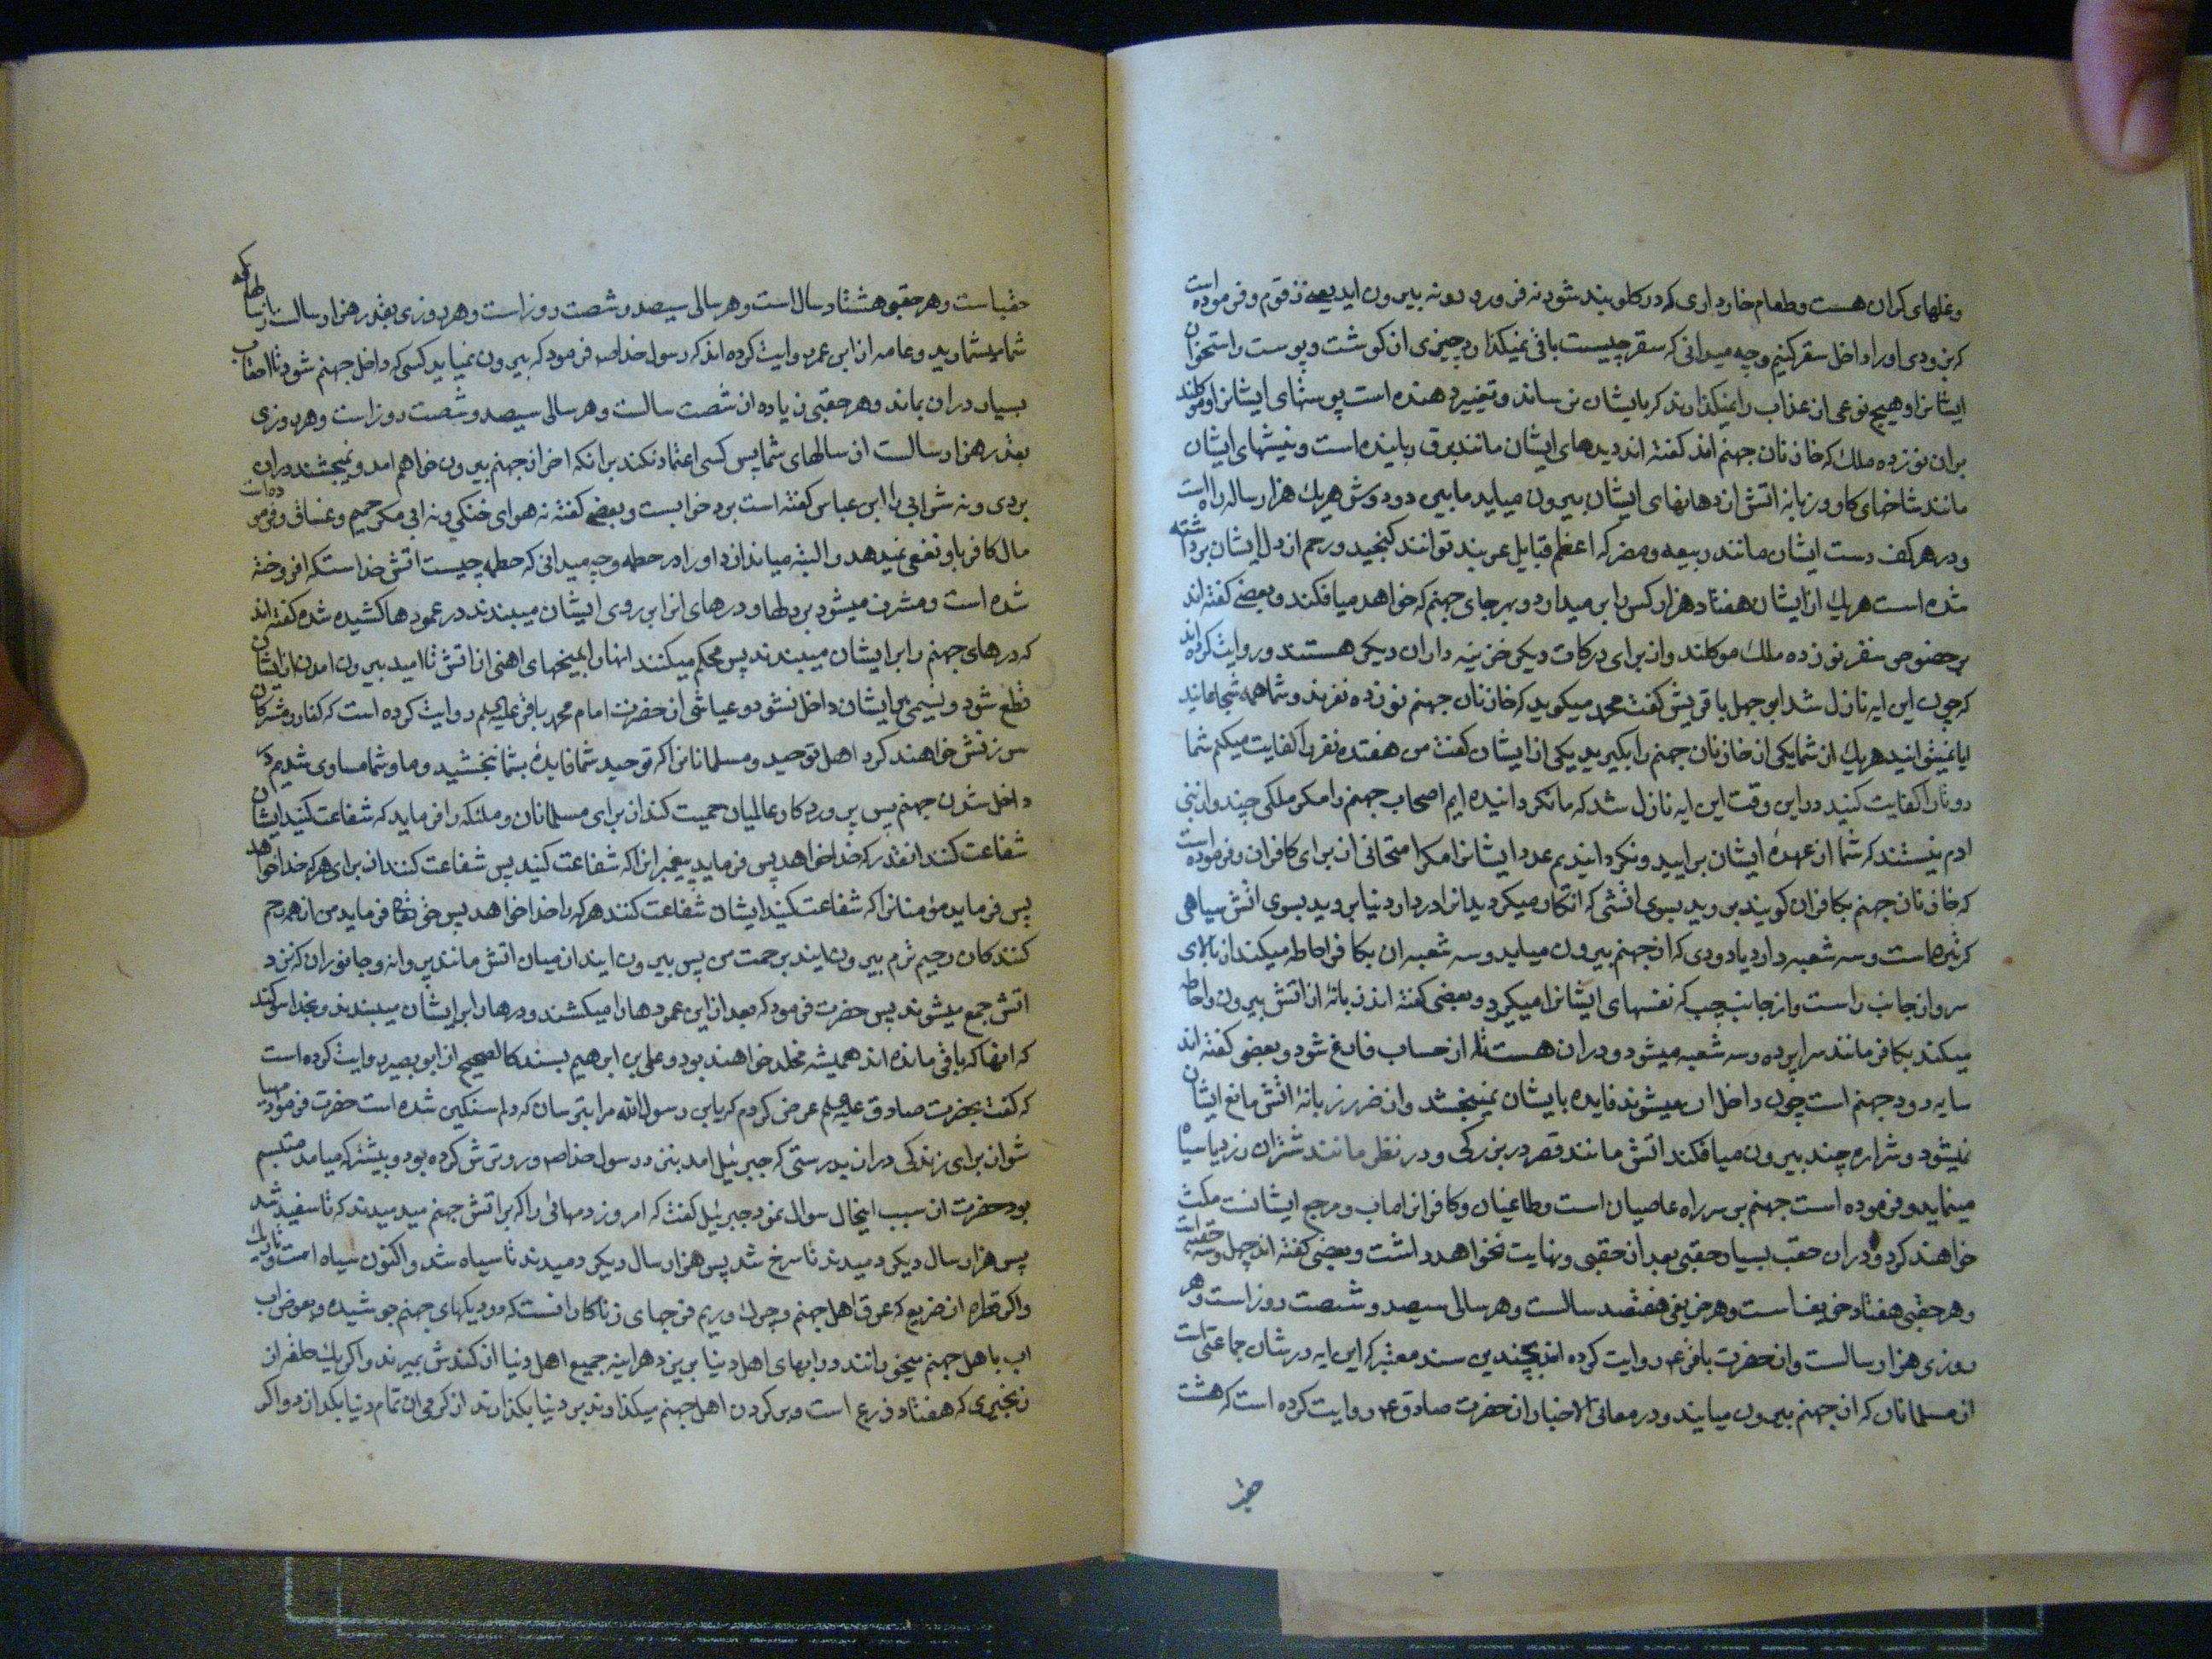 وغلهای کران هست وطعام خارداری که در کلو بند شود نه فرو رود و نه بیرون اید یعنی زقوم و فرموده است
که بزودی اورا داخل سقر کنیم وچه میدانی که سقر چیست باقی نمیکذارد چیزی از کوشت وپوست واستخوان
ایشانرا وهیچ نوعی از عذاب را نمیکذارند که بایشان نرساند وتغییر دهنده است پوستهای ایشانرا وموکلند
بران نوزده ملک که خازنان جهنم اند کفته اند دیدهای ایشان مانند برق رباینده است ونیشهای ایشان
مانند شاخهای کاو وزبانه اتش از دهانهای ایشان بیرون میاید مابین دو دوش هریک هزار ساله راه است
ودر هر کف دست ایشان مانند ربیعه ومضر که اعظم قبایل عربند توانند کنجید ورحم از دل ایشان برداشته
شده است هریک از ایشان هفتاد هزار کس را بر میدارد وبهر جای جهنم که خواهد میافکند وبعضی کفته اند
بر خصوص سقر نوزده ملک موکلند واز برای درکات دیکر خزینه داران دیکر هستند و روایت کرده اند
که چون این ایه نازل شد ابو جهل با قریش کفت محمد میکوید که خازنان جهنم نوزده نفرند وشما همه شجاعانید
ایا نمیتوانید هریک از شما یکی از خازنان جهنم را بکیرید یکی از ایشان کفت من هفتده نفر را کفایت میکنم شما
دو تا را کفایت کنید دراین وقت این ایه نازل شد که ما نکردانیده ایم اصحاب جهنم را مکر ملکی چند واز بنی
ادم نیستند که شما از عهدهٔ ایشان برایید ونکردانیدیم عدد ایشانرا مکر امتحانی از برای کافران و فرموده است
که خازنان جهنم بکافران کویند بروید بسوی اتشی که انکار میکردید انرا در دار دنیا بروید بسوی اتش سیاهی
که تیره است وسه شعبه دارد یا دودی که از جهنم بیرون میاید وسه شعبه ان بکافر احاطه میکند از بالای
سر واز جانب راست واز جانب چپ که نفسهای ایشانرا میکیرد وبعضی کفته اند زبانهٔ از اتش بیرون واحاطه
میکند بکافر مانند سراپرده وسه شعبه میشود و دران هست تا از حساب فارغ شود وبعضی کفته اند
سایه دود جهنم است چون داخل ان میشوند فایده بایشان نمیبخشد واز ضرر زبانهٔ اتش مانع ایشان
نمیشود وشراره چند بیرون میافکند اتش مانند قصر در بزرکی ودر نظر مانند شتران زرد یا سیاه
مینماید وفرموده است جهنم بر سر راه عاصیان است وطاغیان وکافرانرا ماب ومرجع ایشانست مکث
خواهند کرد دران حقب بسیار حقبی بعد از حقبی ونهایت نخواهد داشت وبعضی کفته اند چهل وسه حقب است
وهر حقبی هفتاد خریف است وهر خریفی هفتصد سالست وهر سالی سیصد وشصت روز است وهر
روزی هزار سالست واز حضرت باقر ع روایت کرده اند بچندین سند معتبر که این ایه در شان جماعتی است
از مسلمانان که از جهنم بیرون میایند ودر معانی الاخبار از حضرت صادق ع روایت کرده است که هشت
حقب است وهر حقبی هشتاد سال است وهر سالی سیصد وشصت روز است وهر روزی بقدر هزار سالست
شما میشمارید وعامه از ابن عمر روایت کرده اند که رسول خدا ص فرمود که بیرون نمیاید کسی که داخل جهنم شود تا احقاب
بسیار دران بماند وهر حقبی زیاده از شصت سالست وهر سالی سیصد وشصت روز است وهر روزی
بقدر هزار سالست از سالهای شما پس کسی اعتماد نکند برانکه اخر از جهنم بیرون خواهم امد ونمیچشند دران
بردی ونه شرابی را ابن عباس کفته است برد خوابست وبعضی کفته نه هوای خنکی ونه ابی مکر حمیم وغساق وفرموده است
مال کافر باو نفعی نمیدهد والبته میاندازد اورا در حطمه وچه میدانی که حطمه چیست اتش خداست که افروخته
شده است ومشرف میشود بر دلها ودرهای انرا بر روی ایشان میبندند در عمودها کشیده شده کفته اند
که درهای جهنم را بر ایشان میبندند پس محکم میکنند انها را بمیخهای اهنی از اتش تا امید بیرون امدن از ایشان
قطع شود ونسیمی بر ایشان داخل نشود وعیاشی از حضرت امام محمد باقر علیه السلم روایت کرده است که کفار ومشرکان
سرزنش خواهند کرد اهل توحید ومسلمانانرا که توحید شما فایدهٔ بشما نبخشید وما وشما مساوی شدیم در
داخل شدن جهنم پس پروردکار عالمیان حمیت کند از برای مسلمانان وملئکه را فرماید که شفاعت کنید ایشان
شفاعت کنند انقدر که خدا خواهد پس فرماید پیغمبرانرا که شفاعت کنید پس شفاعت کنند از برای هر که خدا خواهد
پس فرماید مؤمنانرا که شفاعت کنید ایشان شفاعت کنند هرکه را خدا خواهد پس حق تعالی فرماید من از همه رحم
کنندکان رحیم ترم بیرون ایند برحمت من پس بیرون ایند از میان اتش مانند پروانه وجانوران که نزد
اتش جمع میشوند پس حضرت فرمود که بعد از این عمودها را میکشند ودرها را بر ایشان میبندند وبخدا سوکند
که انها که باقی مانده اند همیشه مخلد خواهند بود وعلی بن ابرهیم بسند کالصحیح از ابو بصیر روایت کرده است
که کفت بحضرت صادق علیه السلم عرض کردم که یابن رسول الله مرا بترسان که دلم سنکین شده است حضرت فرمود مهیا
شو از برای زندکی دراز بدرستی که جبرئیل امد بنزد رسول خدا ص ورو ترش کرده بود وپیشتر که میامد متبسم
بود حضرت از سبب اینحال سوال نمود جبرئیل کفت که امروز دمهائی را که بر اتش جهنم میدمیدند که تا سفید شد
پس هزار سال دیکر دمیدند تا سرخ شد پس هزار سال دیکر دمیدند تا سیاه شد واکنون سیاه است و تاریک
واکر قطره از ضریع که عرق اهل جهنم وچرک وریم فرجهای زناکارانست که در دیکهای جهنم جوشیده وبعوض اب
اب باهل جهنم میخورانند در ابهای اهل دنیا بریزد هراینه جمیع اهل دنیا از کندش بمیرند واکر یک حلقه از
زنجیری که هفتاد ذرع است وبر کردن اهل جهنم میکذارند بر دنیا بکذارند از کرمی ان تمام دنیا بکدازد واکر